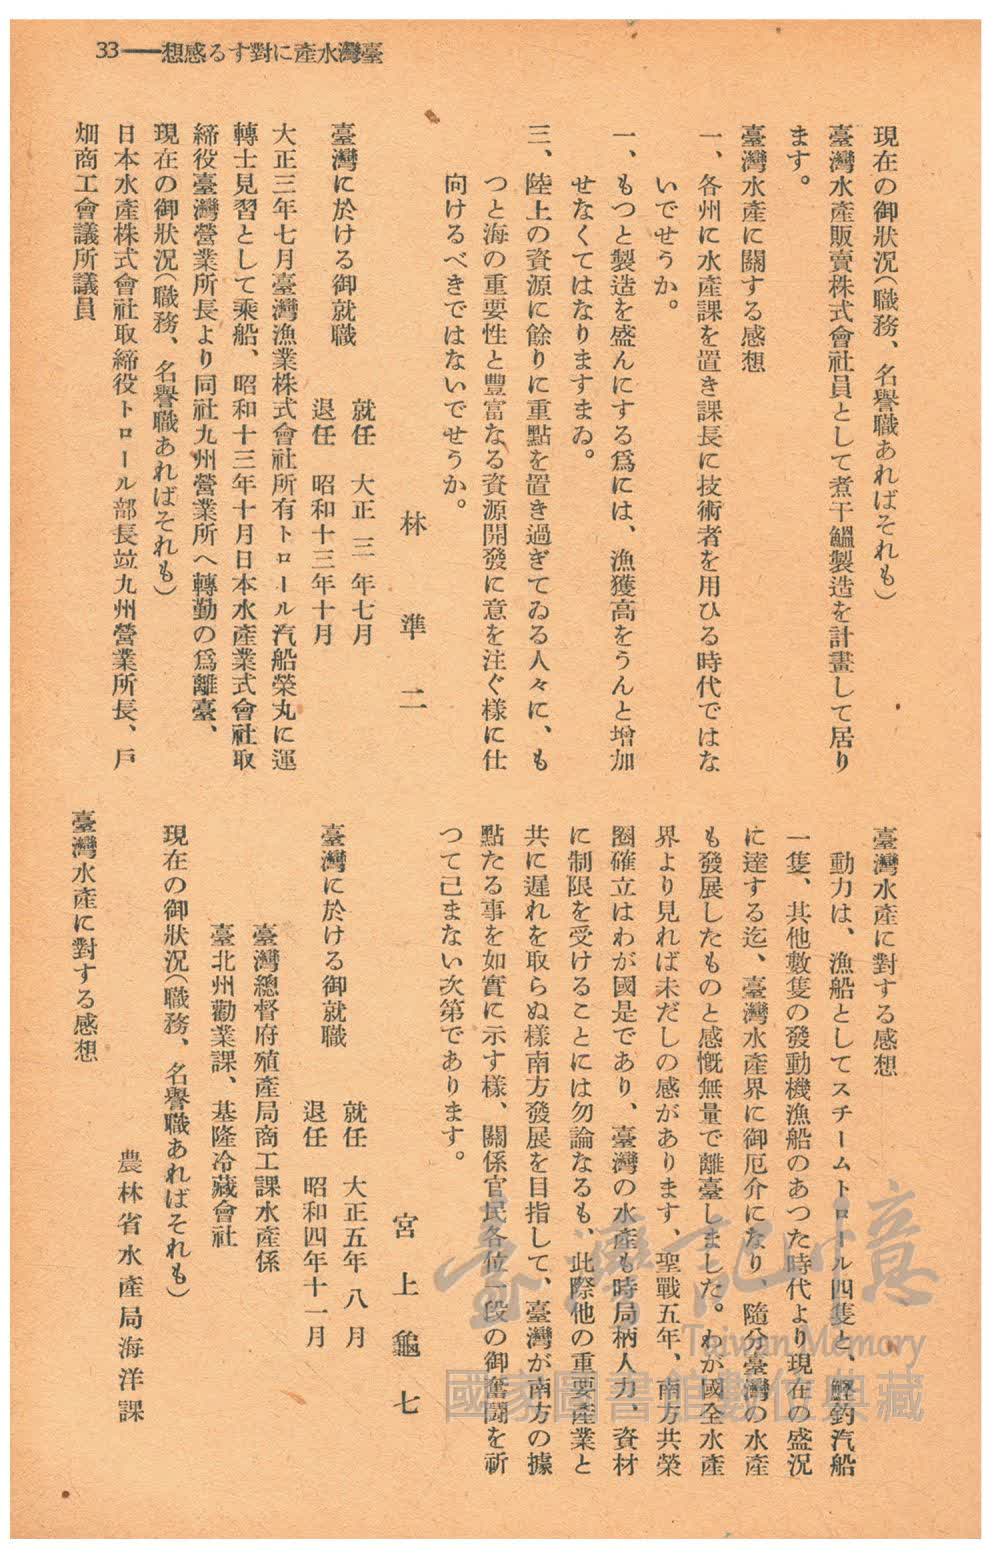 臺灣水產に對する感想――33
現在の御狀況(職務、名譽職あればそれも)
臺灣水產販賣株式會社員として煮干鰮製造を計畫して居り
ます。
臺灣水產に關する感想
一、各州に水產課を置き課長に技術者を用ひる時代ではな
いでせうか。
一、もつと製造を盛んにする爲には、漁獲高をうんと增加
せなくてはなりますまゐ。
三、陸上の資源に餘りに重點を置き過ぎてゐる人々に、も
つと海の重要性と豐富なる資源開發に意を注ぐ樣に仕
向けるべきではないでせうか。
林準二
臺灣に於ける御就職
就任 大正三年七月
退任 昭和十三年十月
大正三年七月臺灣漁業株式會社所有トロール汽船榮丸に運
轉士見習として乘船、昭和十三年十月日本水產業式會社取
締役臺灣營業所長より同社九州營業所へ轉勤の爲離臺、
現在の御狀況(職務、名譽職あればそれも)
日本水產株式會社取締役トロール部長竝九州營業所長、戶
畑商工會議所議員
臺灣水產に對する感想
動力は、漁船としてスチームトロール四隻と、鰹釣汽船
一隻、其他數隻の發動機漁船のあつた時代より現在の盛況
に達する迄、臺灣水產界に御厄介になり、隨分臺灣の水產
も發展したものと感慨無量で離臺しました。わが國全水產
界より見れば未だしの感があります、聖戰五年、南方共榮
圈確立はわが國是であり、臺灣の水產も時局柄人力、資材
に制限を受けることには勿論なるも、此際他の重要產業と
共に遲れを取らぬ樣南方發展を目指して、臺灣が南方の據
點たる事を如實に示す樣、關係官民各位一段の御奮鬪を祈
つて已まない次第であります。
宮上龜七
臺灣に於ける御就職
就任 大正五年八月
退任 昭和四年十一月
臺灣總督府殖產局商工課水產係
臺北州勸業課、基隆冷藏會社
現在の御狀況(職務、名譽職あればそれも)
農林省水產局海洋課
臺灣水產に對する感想
臺灣記憶
Taiwan Memory
國家圖書館數位典藏